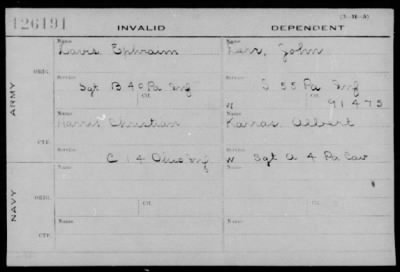 (3-H-A)
126191 INVALID DEPENDENT
Name Name
Ephraim John
ORIG. Service Service
Sgt B 40 Pa Inf 55 Pa Inf
Ctf. W 91475
ARMY
Name Name
Christian Karras Albert
CTF. Service Service
C 14 Ohio Inf W Sgt A 4 Pa Cav
Name Name
ORIG. Service Service
Ctf. Ctf.
NAVY
Name Name
CTF.